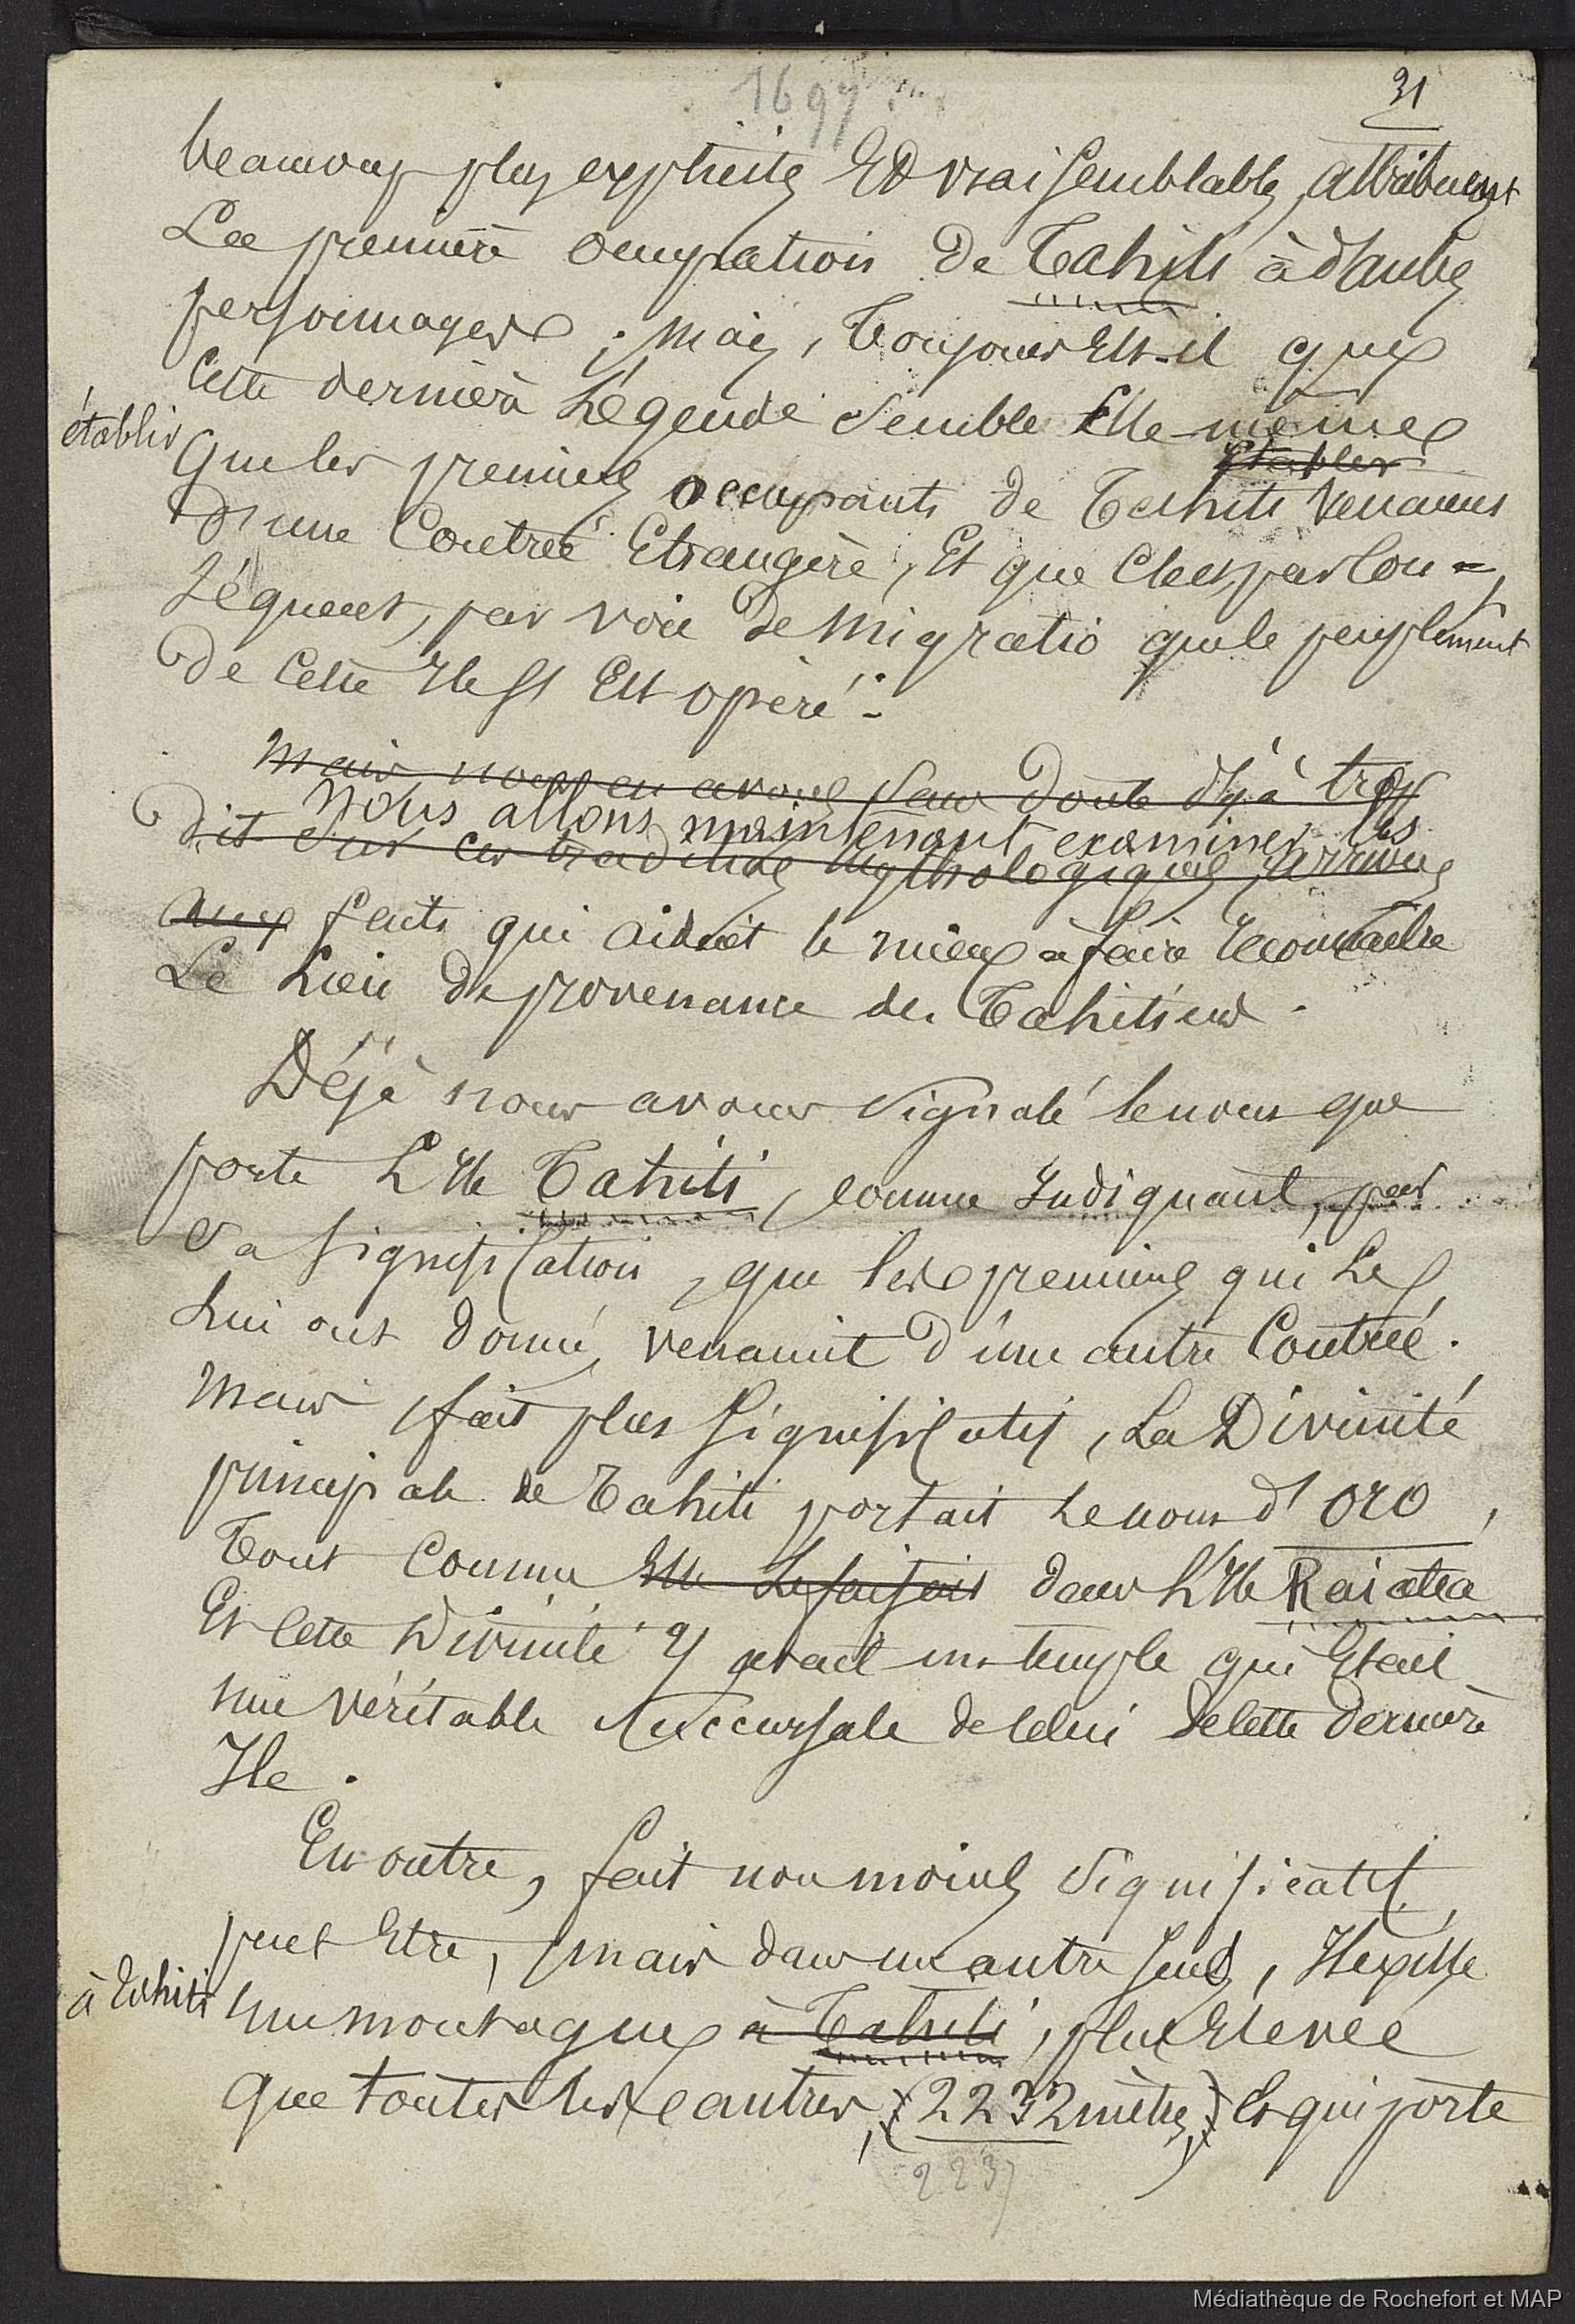 1697
31
beaucoup plus explicites Et vraisemblables, attribuent
La première occupation de Tahiti à d'autres
personnages ; mais, Toujours Est-il que
Cette dernière Légende semble Elle-même
établir
établir
Que les premiers occupants de Tahiti venaient
D'une Contrée Etrangère, Et que C'est par Con=
séquent, par voie de Migratio que le peuplement
De Cette Ile s'est Est opéré.
Mais nous en avons sans doute déjà trop
Nous allons maintenant examiner les
dit sur ces traditions mythologiques, arrivons
aux faits qui aident le mieux à faire reconnaître
Le Lieu de provenance des Tahitiens.
Déjà nous avons signalé le nom que
porte L'Ile Tahiti, comme Indiquant, par
sa signification, que les premiers qui Le
Lui ont donné, venaient d'une autre Contrée.
Mais, fait plus significatif, La Divinité
principale de Tahiti portait Le nom d'Oro,
Tout Comme Elle Le faisait dans L'Ile Raiatea
Et Cette Divinité y avait un temple qui Etait
une véritable succursale de Celui de Cette dernière
Ile.
En outre, fait non moins significatif
peut Etre, mais dans un autre sens, Il existe
à Tahiti
une montagne à Tahiti, plus Elevée
que toutes les autres, (2232 mètres,) Et qui porte
2237
Médiathèque de Rochefort et MAP